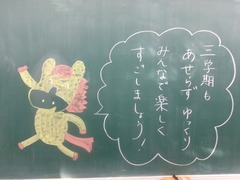 三学期も
あせらず ゆっくり
みんなで楽しく
すごしましょう!